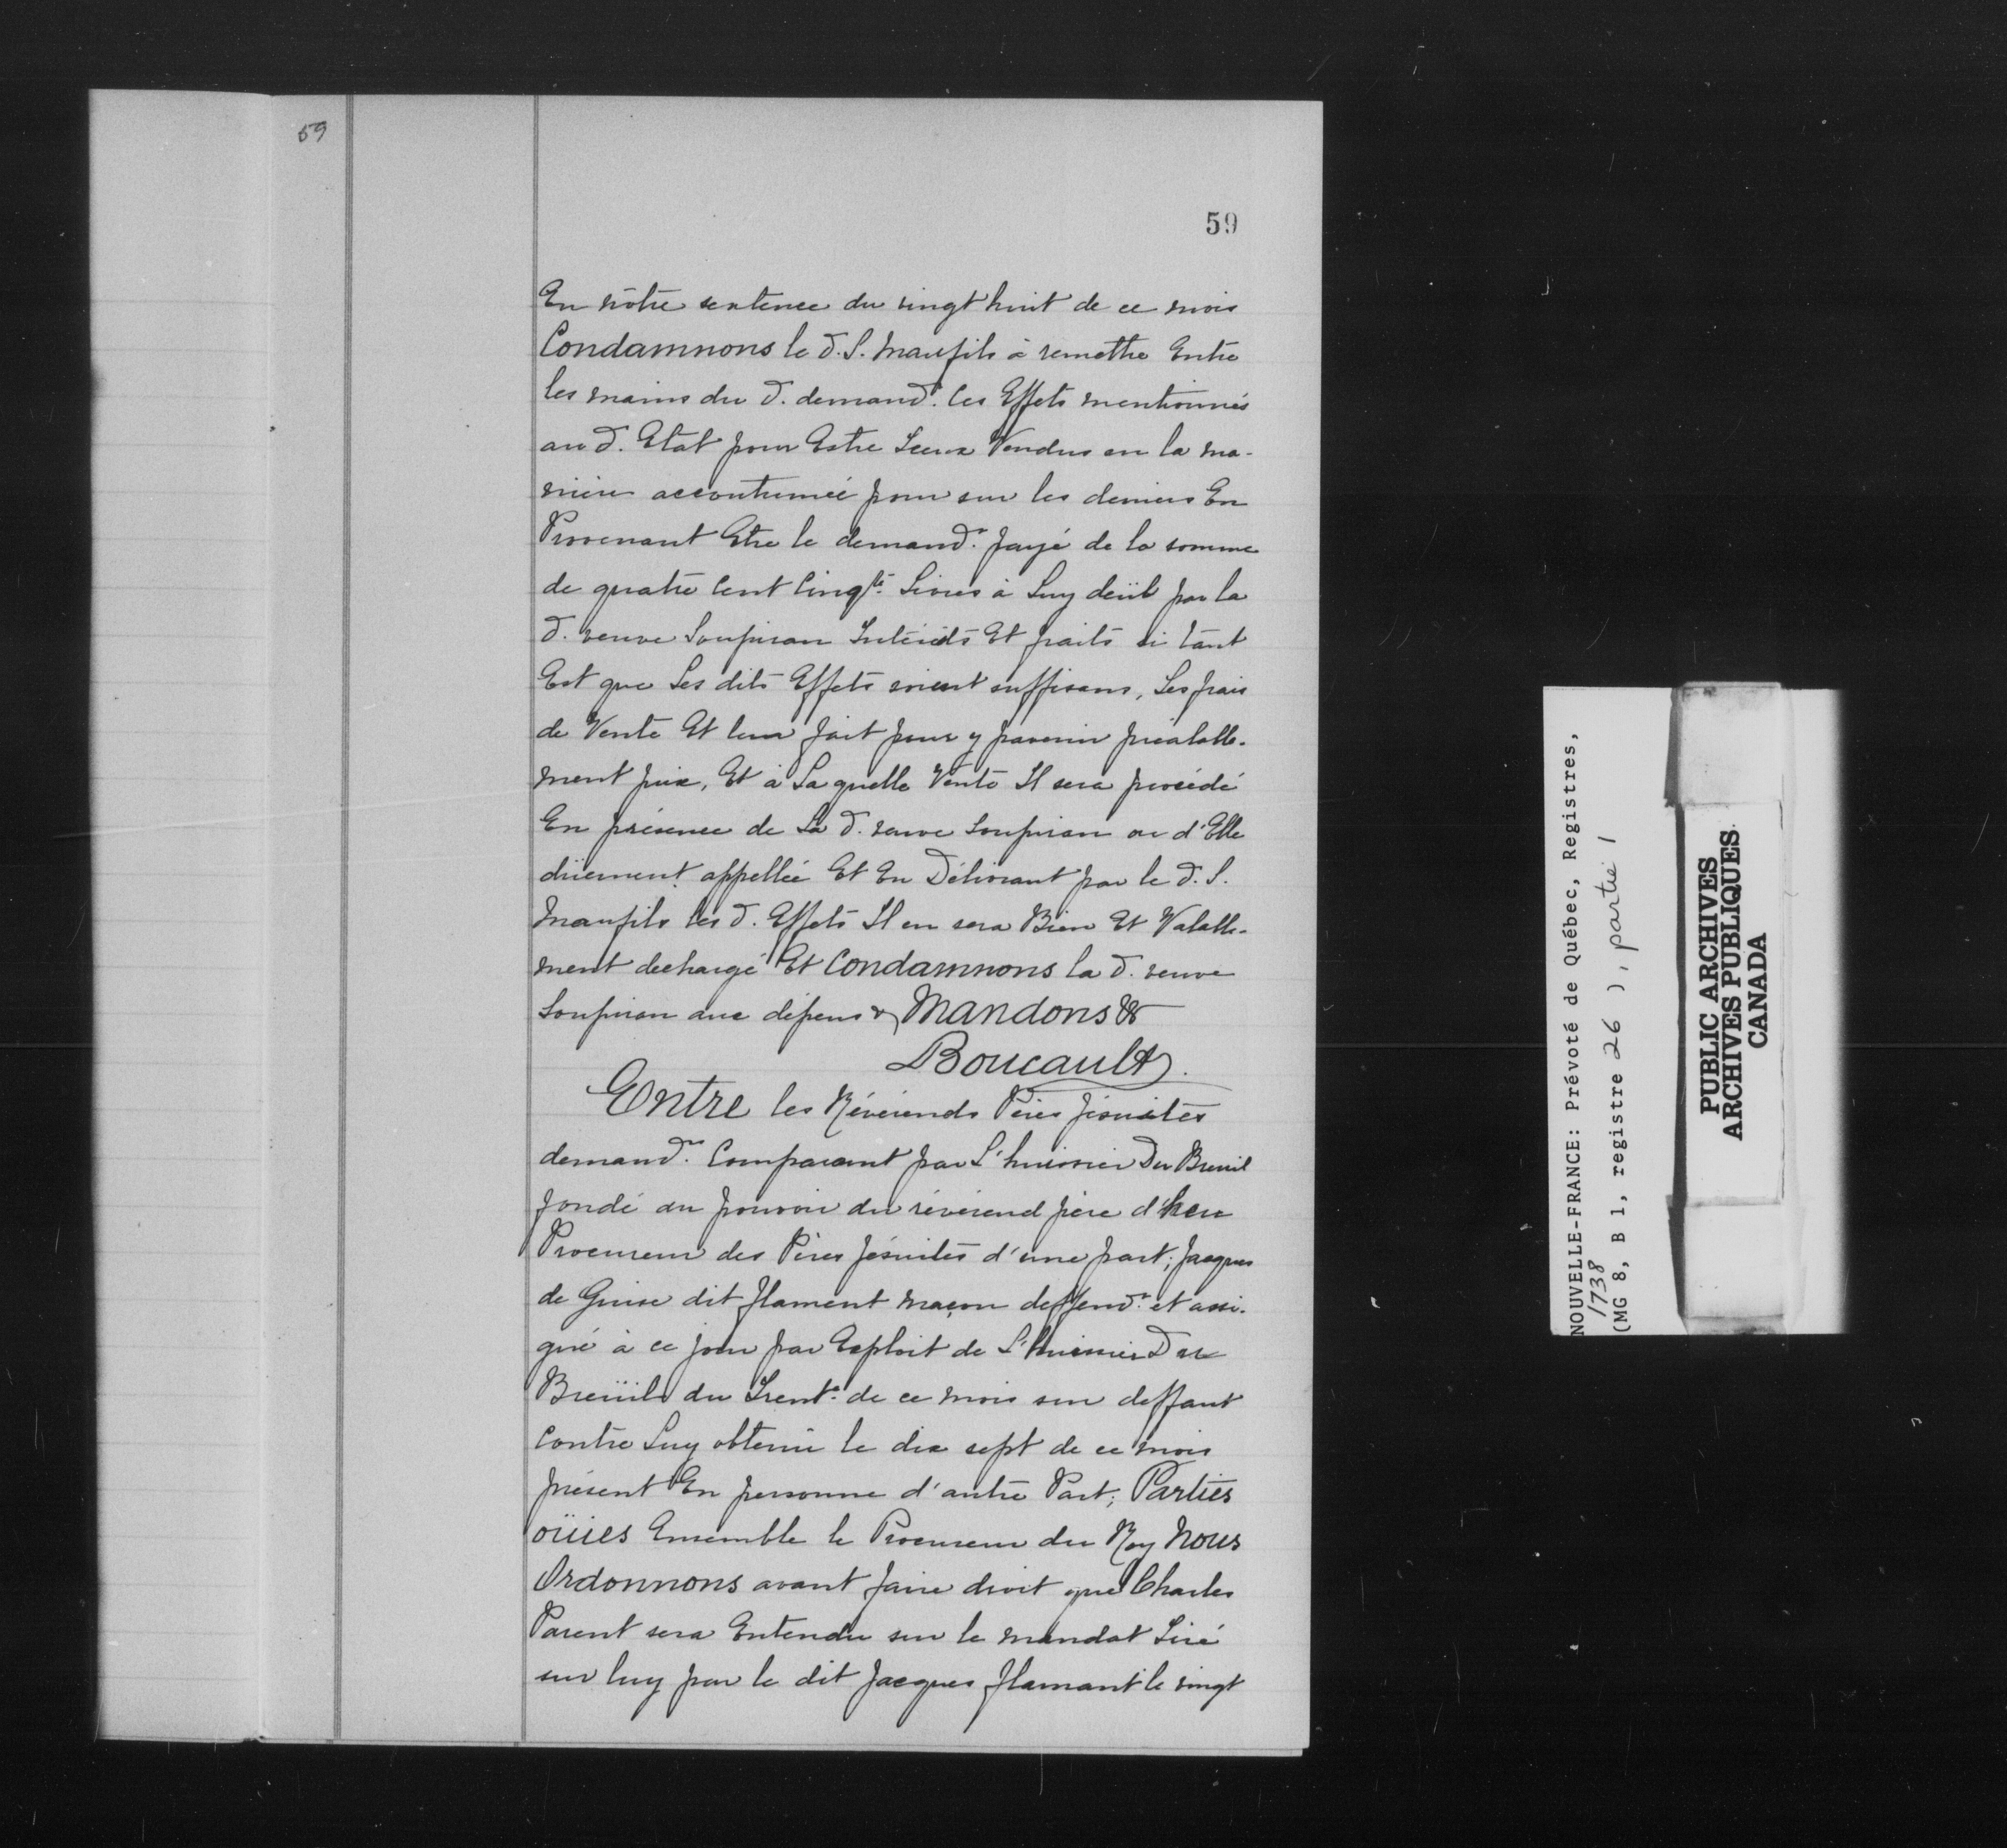 59
59
En nôtre sentence du vingt huit de ce mois
Condamnons le d. S. Maufils à remettre Entre
les mains du d. demandr. les Effets mentionnés
au d. Etat pour Estre Iceux Vendus en la ma-
nière accoutumée pour sur les deniers En
Provenant Etre le demandr. payé de la somme
de quatre Cent Cinqte. Livres à Luy deüe par la
d. veuve Soupiran Intérêts Et fraits si tant
Est que Les dits Effets soient suffisans, Les frais
de Vente Et leur fait pour y parvenir préalable-
ment prix, Et à Laquelle Vente Il sera procédé
En présence de La d. veuve Soupiran ou d'Elle
düement appellée Et En Délivrant par le d. S.
Maufils les d. Effets Il en sera Bien Et Valable-
ment dechargé Et Condamnons la d. veuve
Soupiran aux dépens & Mandons &
Boucault.
Entre les Révérends Pères Jésuites
demandrs. Comparant par L'huissier Du Breuil
fondé au pouvoir du révérend père
Procureur des Pères Jésuites d'une part; Jacques
de Guise dit flament maçon deffendr. et assi-
gné à ce jour par Exploit de L'huissier Du
Breüil du Trente. de ce mois sur deffaut
Contre Luy obtenu le dix sept de ce mois
présent En personne d'autre Part; Parties
oüies Ensemble le Procureur du Roy Nous
Ordonnons avant faire droit que Charles
Parent sera Entendu sur le mandat Tiré
sur luy par le dit Jacques flamant le vingt
NOUVELLE-FRANCE: Prévoté de Québec, Registres,
1738
(MG 8, B 1, registre 26 ), partie 1
PUBLIC ARCHIVES
ARCHIVES PUBLIQUES
CANADA